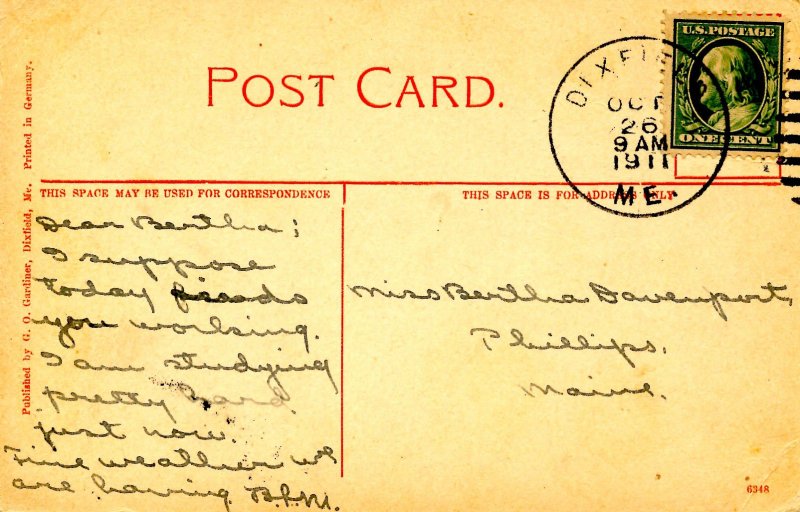 POST CARD.
U.S. POSTAGE
ONE CENT
DIXFIELD
OCT
26
9 AM
1911
ME.
THIS SPACE MAY BE USED FOR CORRESPONDENCE
THIS SPACE IS FOR ADDRESS ONLY
Published by G. O. Gardiner, Dixfield, Me. Printed in Germany.
Dear Bertha;
I suppose
today finds
you working.
I am studying
pretty hard
just now.
Fine weather we
are having B.L.M.
Miss Bertha Davenport,
Phillips,
Maine.
6348